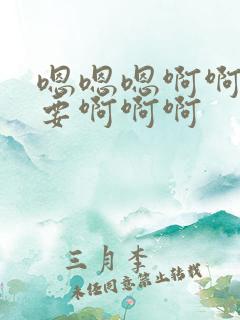 嗯嗯嗯啊啊
要啊啊啊
三月李
未经同意禁止转载